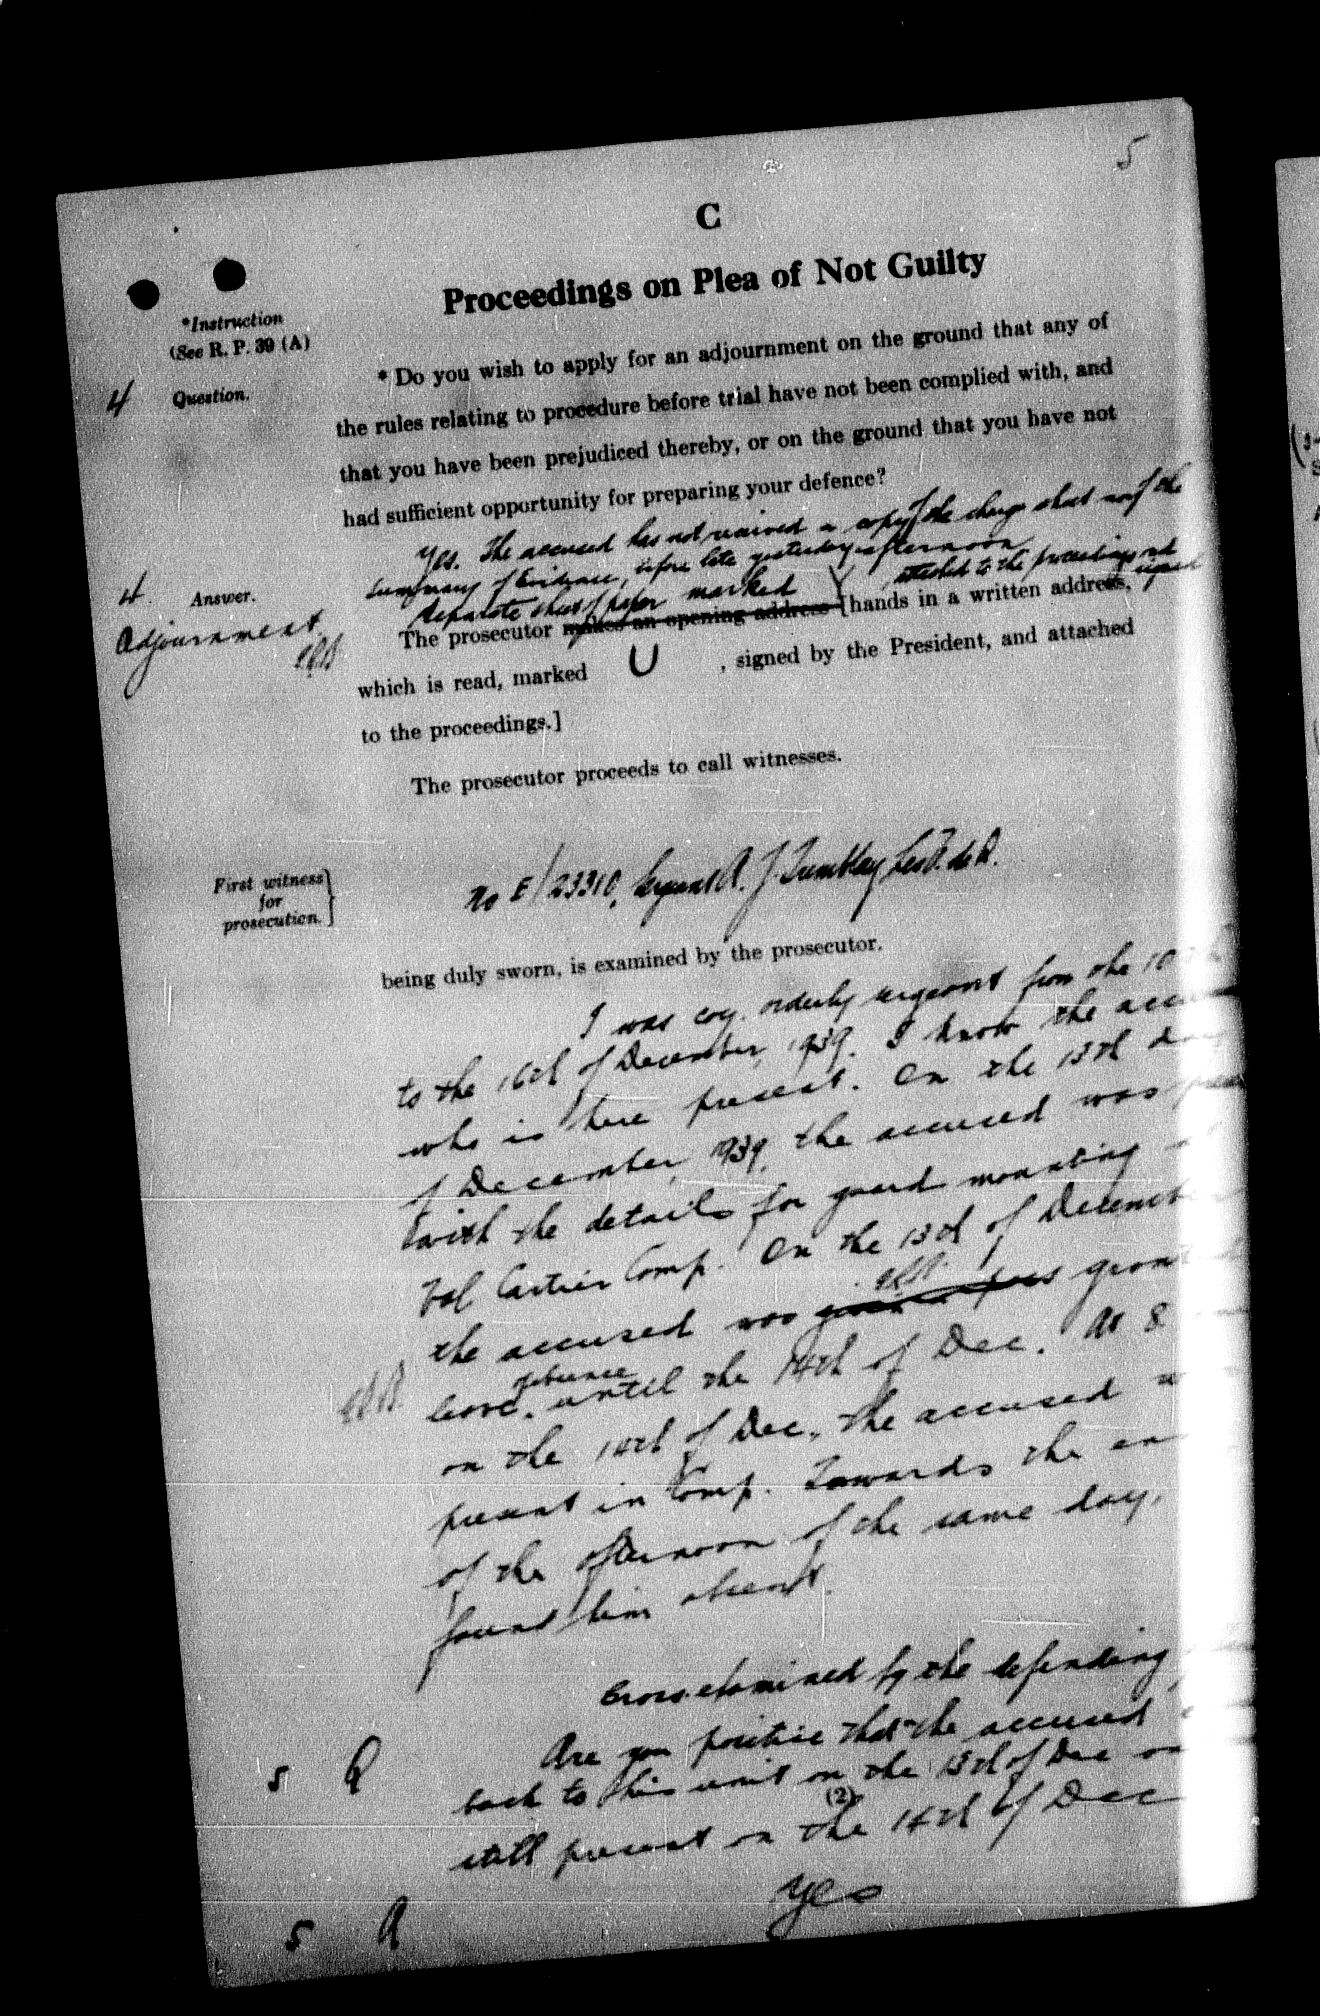 5
C
Proceedings on Plea of Not Guilty
*Instruction
(See R. P. 39 (A)
4 Question.
* Do you wish to apply for an adjournment on the ground that any of
the rules relating to procedure before trial have not been complied with, and
that you have been prejudiced thereby, or on the ground that you have not
had sufficient opportunity for preparing your defence?
Yes. The accused has not received a copy of the charge sheet nor of the
summary of Evidence, before late yesterday afternoon
4. Answer.
Adjournment
Separate sheet of paper marked Y attached to the proceedings and signed
The prosecutor makes an opening address [hands in a written address,
which is read, marked U , signed by the President, and attached
to the proceedings.]
The prosecutor proceeds to call witnesses.
First witness
for
prosecution.
No E/23310, Sergeant A. J. Tumblay
being duly sworn, is examined by the prosecutor.
I was coy. orderly sergeant from the 10
to the 16th of December, 1939. I know the
who is here present. On the 13th
of December, 1939, the accused was
with the details for guard mounting
Val Cartier Camp. On the 13th of
the accused was
leave of absence until the 14th of Dec. At 8
on the 14th of Dec., the accused
present in Camp. Towards the
of the afternoon of the same day,
found him absent.
Cross examined by the defending
5 Q Are you positive that the accused
back to his unit on the 13th of Dec
(2)
still present on the 14th of Dec
5 A Yes